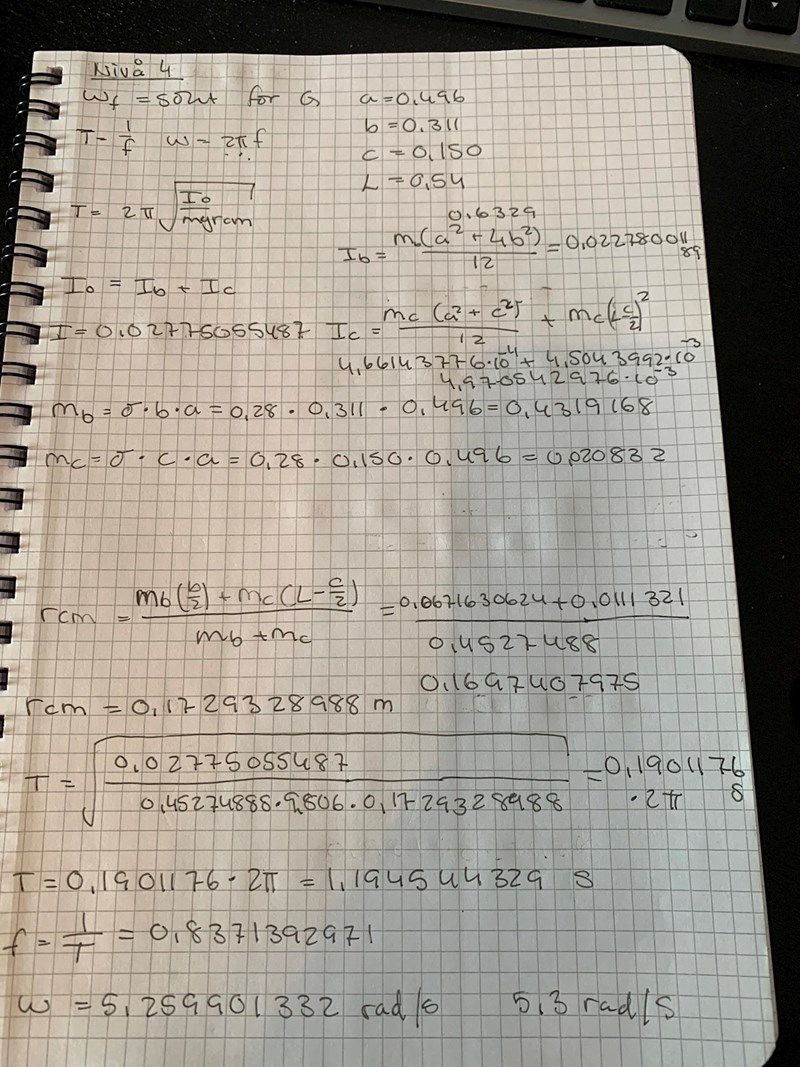 Nivå 4
ω_f = sökt för G
a = 0.496
T = 1/f ω = 2πf
b = 0.311
c = 0,150
L = 0,54
T = 2π √(I0/mgrcm)
0.6329
Ib = m(a² + 4b²)/12 = 0,02278001189
I0 = Ib + Ic
I = 0.02775055487
Ic = mc (a² + c²)/12 + mc(L-c/2)²
4,66143776·10⁻⁴ + 4,5043992·10⁻³
4,970542976·10⁻³
mb = σ·b·a = 0,28 · 0,311 · 0,496 = 0,4319168
mc = σ·c·a = 0,28 · 0,150 · 0,496 = 0,020832
rcm = (mb(b/2) + mc(L-c/2))/(mb + mc) = (0,0671630624 + 0,0111321)/0,4527488
0,1697407975
rcm = 0,1729328988 m
T = √(0,02775055487/(0,45274888·9,806·0,1729328988)) = 0,1901176 · 2π s
T = 0,1901176 · 2π = 1,194544329 s
f = 1/T = 0,8371392971
ω = 5,259901332 rad/s 5,3 rad/s